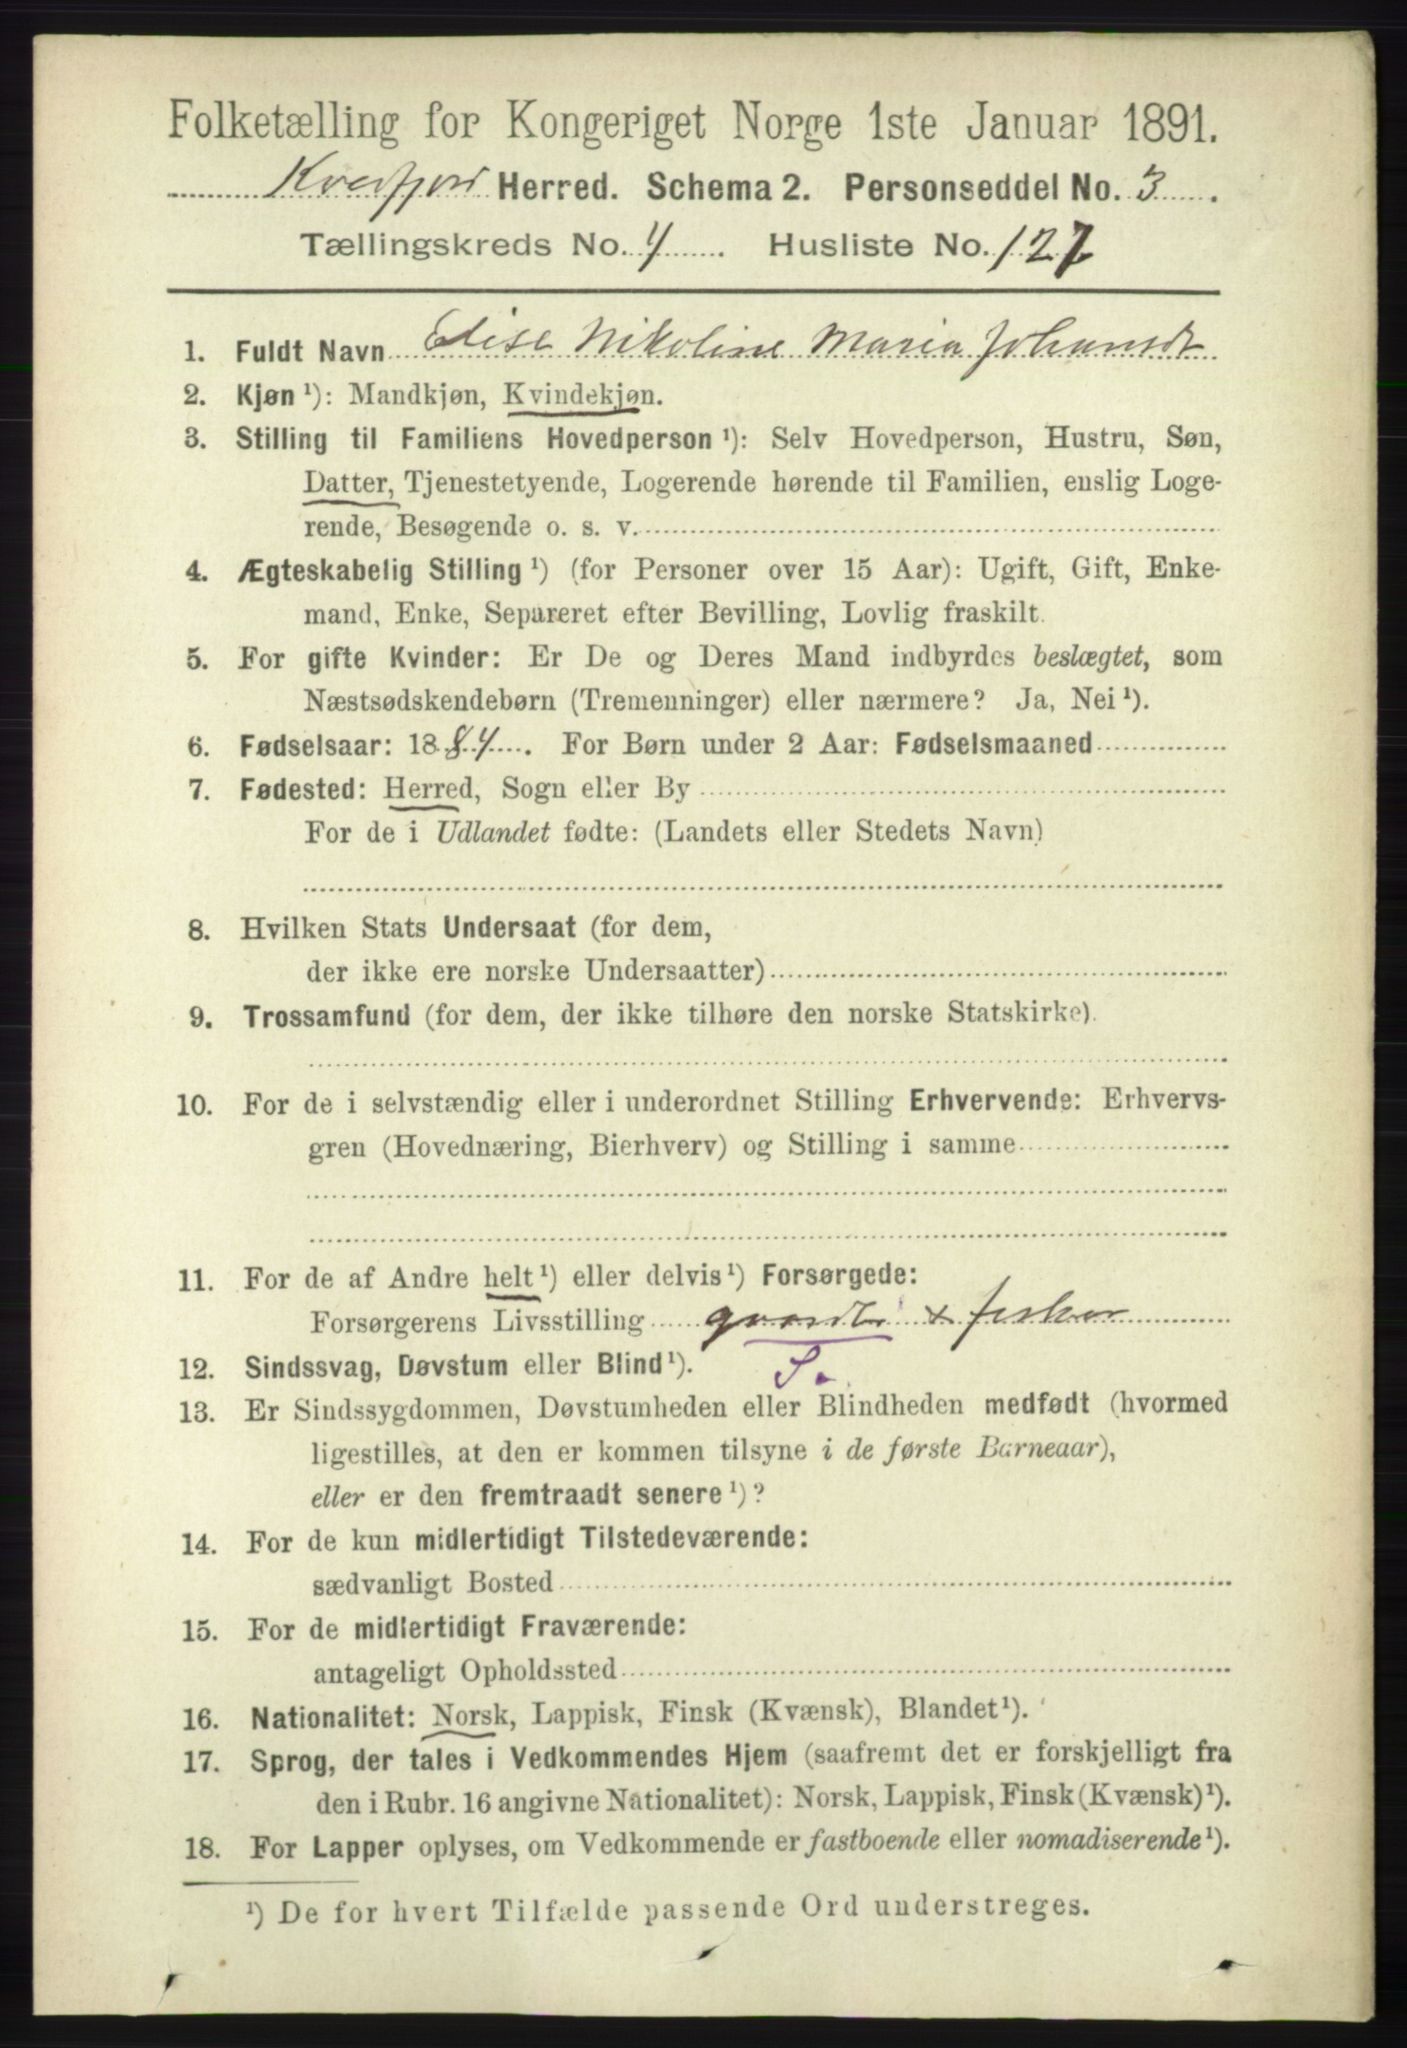 Folketælling for Kongeriget Norge 1ste Januar 1891.
Kvæfjord Herred. Schema 2. Personseddel No. 3.
Tællingskreds No. 4. Husliste No. 127
1. Fuldt Navn Elise Nikoline Maria Johansdt
2. Kjøn ¹): Mandkjøn, Kvindekjøn.
3. Stilling til Familiens Hovedperson ¹): Selv Hovedperson, Hustru, Søn,
Datter, Tjenestetyende, Logerende hørende til Familien, enslig Loge-
rende, Besøgende o. s. v.
4. Ægteskabelig Stilling ¹) (for Personer over 15 Aar): Ugift, Gift, Enke-
mand, Enke, Separeret efter Bevilling, Lovlig fraskilt.
5. For gifte Kvinder: Er De og Deres Mand indbyrdes beslægtet, som
Næstsødskendebørn (Tremenninger) eller nærmere? Ja, Nei ¹).
6. Fødselsaar: 1884. For Børn under 2 Aar: Fødselsmaaned
7. Fødested: Herred, Sogn eller By
For de i Udlandet fødte: (Landets eller Stedets Navn)
8. Hvilken Stats Undersaat (for dem,
der ikke ere norske Undersaatter)
9. Trossamfund (for dem, der ikke tilhøre den norske Statskirke).
10. For de i selvstændig eller i underordnet Stilling Erhvervende: Erhvervs-
gren (Hovednæring, Bierhverv) og Stilling i samme
11. For de af Andre helt ¹) eller delvis ¹) Forsørgede:
Forsørgerens Livsstilling gaardbr + fisker
S.
12. Sindssvag, Døvstum eller Blind ¹).
13. Er Sindssygdommen, Døvstumheden eller Blindheden medfødt (hvormed
ligestilles, at den er kommen tilsyne i de første Barneaar),
eller er den fremtraadt senere ¹)?
14. For de kun midlertidigt Tilstedeværende:
sædvanligt Bosted
15. For de midlertidigt Fraværende:
antageligt Opholdssted
16. Nationalitet: Norsk, Lappisk, Finsk (Kvænsk), Blandet ¹).
17. Sprog, der tales i Vedkommendes Hjem (saafremt det er forskjelligt fra
den i Rubr. 16 angivne Nationalitet): Norsk, Lappisk, Finsk (Kvænsk) ¹).
18. For Lapper oplyses, om Vedkommende er fastboende eller nomadiserende ¹).
¹) De for hvert Tilfælde passende Ord understreges.